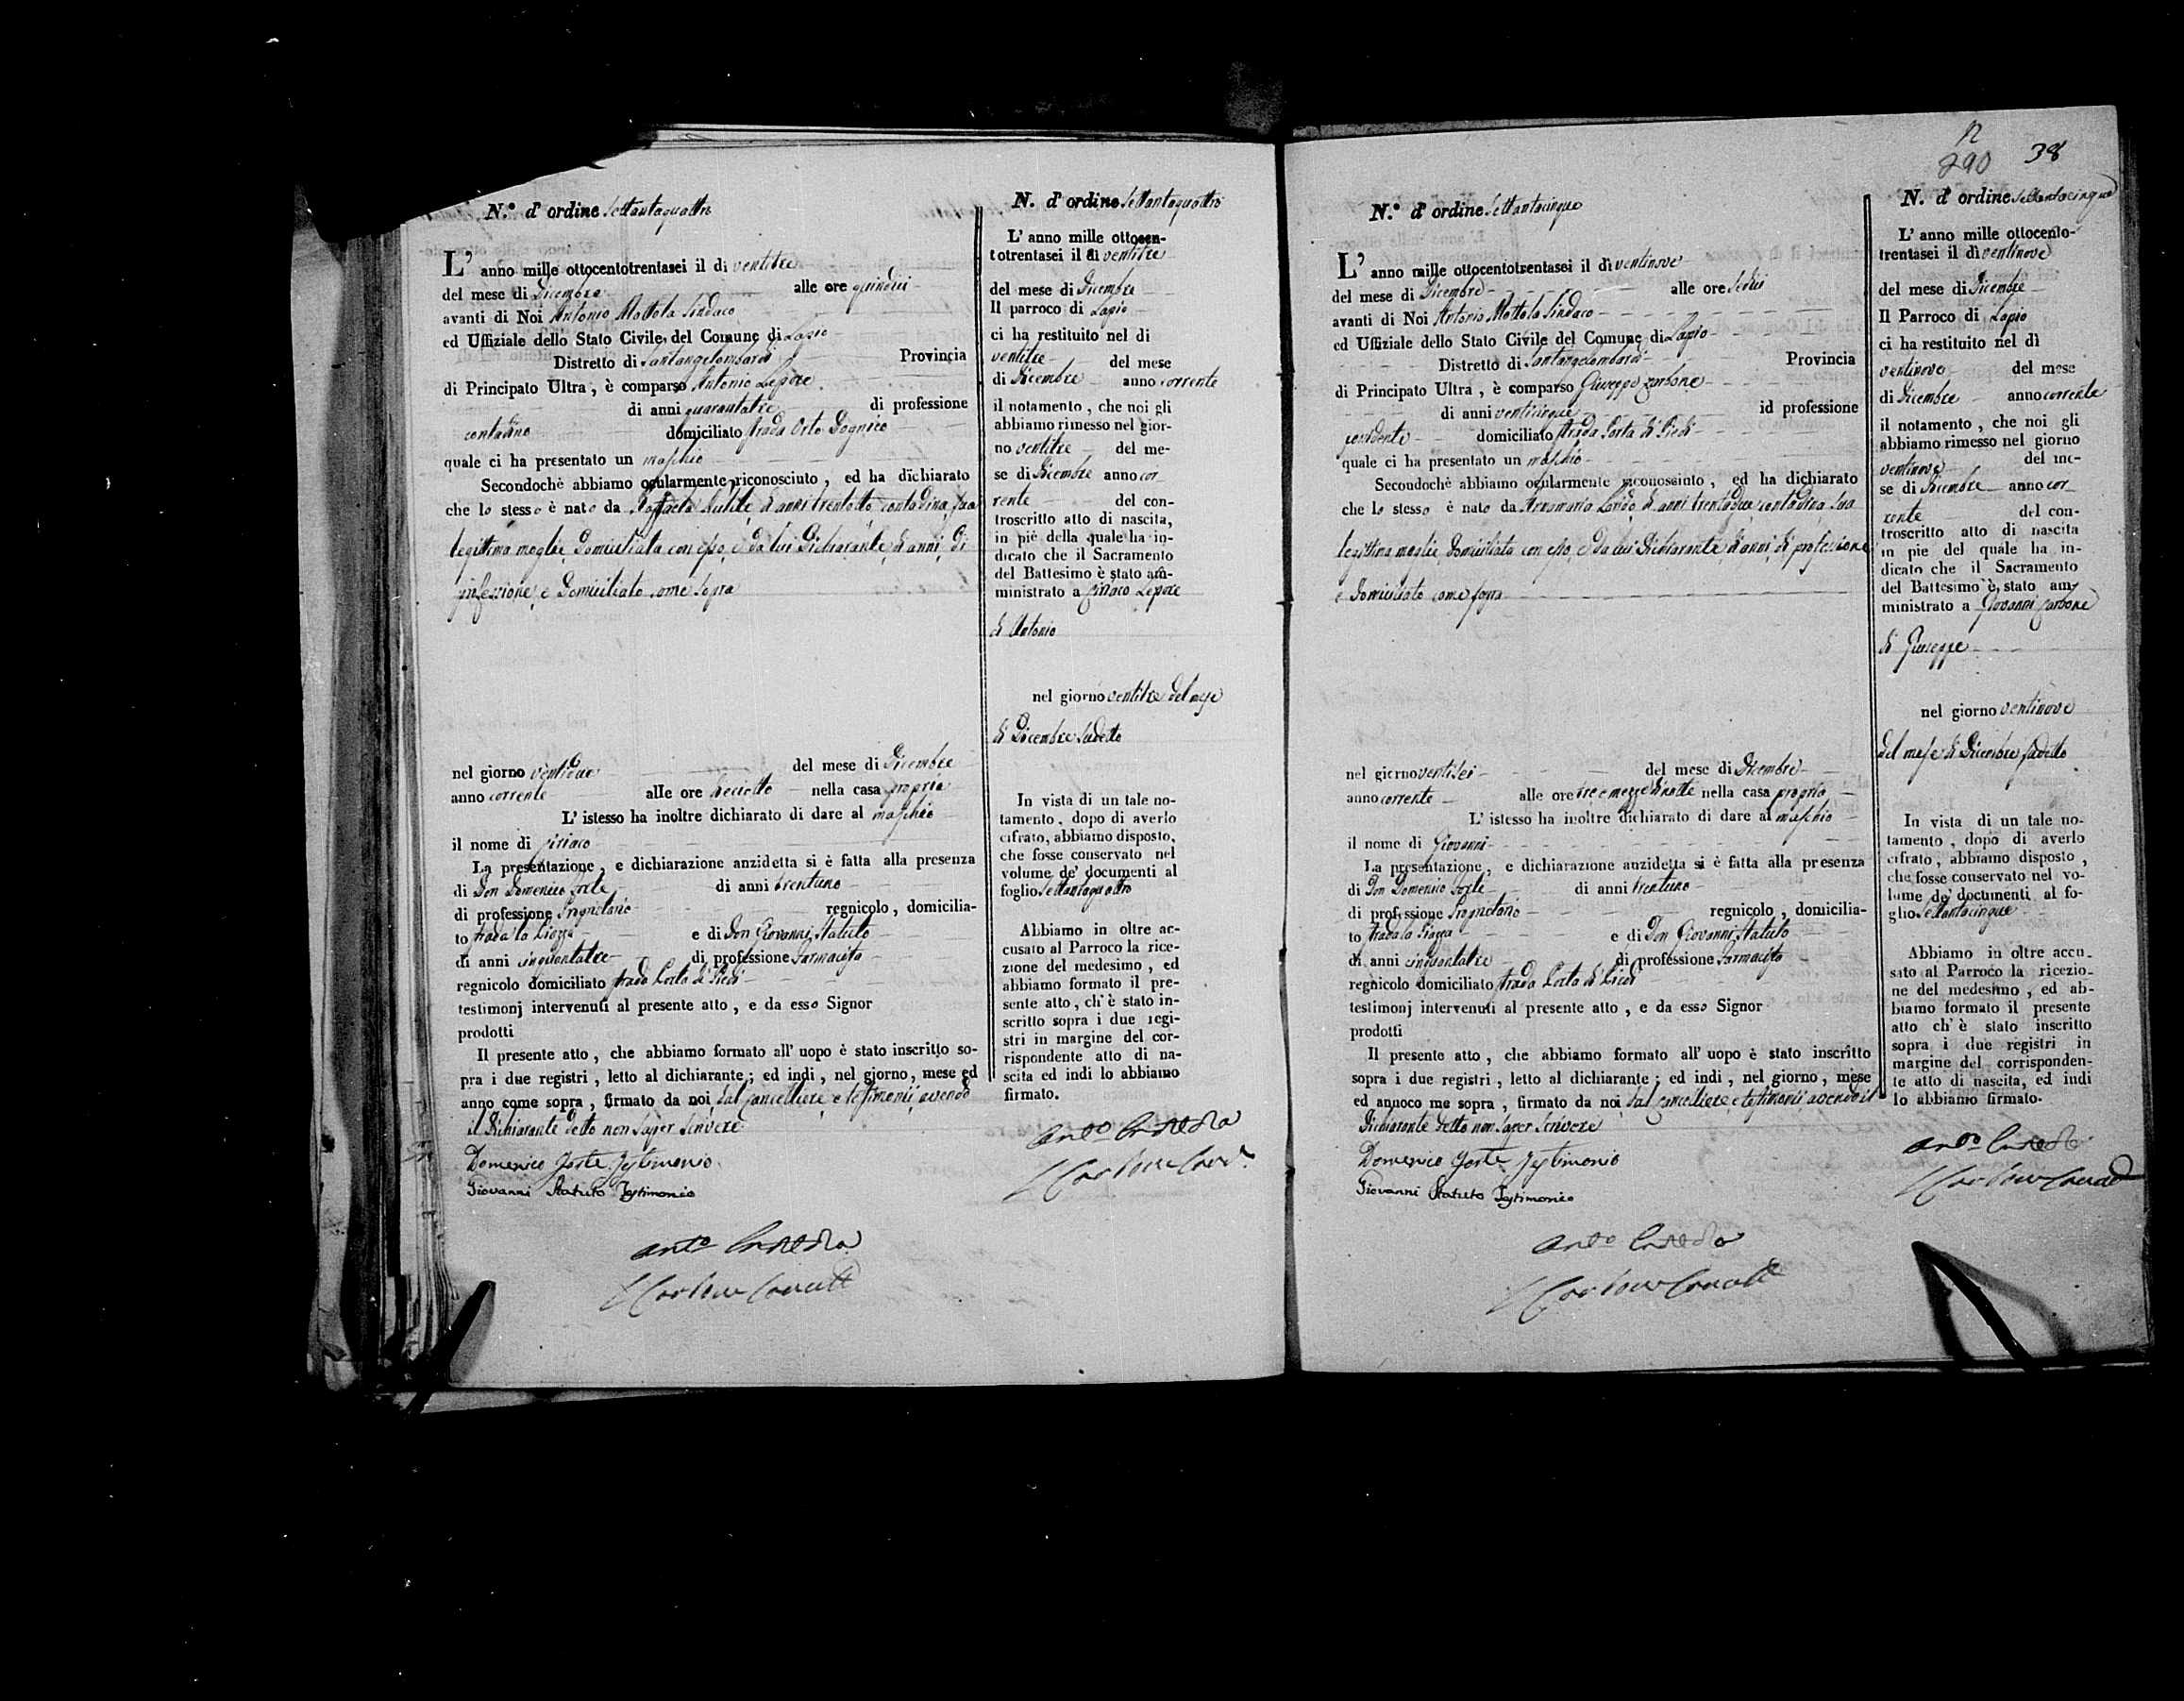 N.° d' ordine Settantaquattro
L' anno mille ottocentotrentasei il di ventitre
del mese di Dicembre alle ore quindici
avanti di Noi Antonio Mottola Sindaco
ed Uffiziale dello Stato Civile del Comune di Lapio
Distretto di Santangelombardi Provincia
di Principato Ultra, è comparso Antonio Lepore
di anni quarantatre di professione
contadino domiciliato strada Orto
quale ci ha presentato un maschio
Secondochè abbiamo ocularmente riconosciuto, ed ha dichiarato
che lo stesso è nato da di anni trentotto contadina sua
legittima moglie domiciliata con esso, e da lui Dichiarante di anni, di
professione, e domiciliato come sopra
nel giorno del mese di Dicembre
anno corrente alle ore nella casa propria
L' istesso ha inoltre dichiarato di dare al maschio
il nome di Ciriaco
La presentazione, e dichiarazione anzidetta si è fatta alla presenza
di Don Domenico Forte di anni trentuno
di professione Proprietario regnicolo, domicilia-
to strada la Piazza e di Don Giovanni Statuto
di anni cinquantatre di professione Farmacista
regnicolo domiciliato strada Porta di Piedi
testimonj intervenuti al presente atto, e da esso Signor
prodotti
Il presente atto, che abbiamo formato all' uopo è stato inscritto so-
pra i due registri, letto al dichiarante; ed indi, nel giorno, mese ed
anno come sopra, firmato da noi dal Cancelliere e testimonii avendo
il Dichiarante detto non saper scrivere
Domenico Forte Testimonio
Giovanni Statuto Testimonio
N. d' ordine Settantaquattro
L' anno mille ottocen-
totrentasei il di ventitre
del mese di Dicembre
Il parroco di Lapio
ci ha restituito nel di
ventitre del mese
di Dicembre anno corrente
il notamento, che noi gli
abbiamo rimesso nel gior-
no ventitre del me-
se di Dicembre anno cor
rente del con-
troscritto atto di nascita,
in piè della quale ha in-
dicato che il Sacramento
del Battesimo è stato am-
ministrato a Ciriaco Lepore
di Antonio
nel giorno ventitre del mese
di Dicembre sudetto
In vista di un tale no-
tamento, dopo di averlo
cifrato, abbiamo disposto,
che fosse conservato nel
volume de' documenti al
foglio Settantaquattro
Abbiamo in oltre ac-
cusato al Parroco la rice-
zione del medesimo, ed
abbiamo formato il pre-
sente atto, ch' è stato in-
scritto sopra i due regi-
stri in margine del cor-
rispondente atto di na-
scita ed indi lo abbiamo
firmato.
290 38
N.° d' ordine Settantacinque
L' anno mille ottocentotrentasei il dì ventinove
del mese di Dicembre alle ore sedici
avanti di Noi Antonio Mottola Sindaco
ed Uffiziale dello Stato Civile del Comune di Lapio
Distretto di Santangelombardi Provincia
di Principato Ultra, è comparso Giuseppe Carbone
di anni venticinque id professione
domiciliato strada Porta di Piedi
quale ci ha presentato un maschio
Secondochè abbiamo ocularmente riconosciuto, ed ha dichiarato
che lo stesso è nato da Annamaria di anni trentadue contadina sua
legittima moglie domiciliata con esso, e da lui Dichiarante di anni, di professione
e domiciliato come sopra
nel giorno ventisei del mese di Dicembre
anno corrente alle ore tre e mezza di notte nella casa propria
L' istesso ha inoltre dichiarato di dare al maschio
il nome di Giovanni
La presentazione, e dichiarazione anzidetta si è fatta alla presenza
di Don Domenico Forte di anni trentuno
di professione Proprietario regnicolo, domicilia-
to strada la Piazza e di Don Giovanni Statuto
di anni cinquantatre di professione Farmacista
regnicolo domiciliato strada Porta di Piedi
testimonj intervenuti al presente atto, e da esso Signor
prodotti
Il presente atto, che abbiamo formato all' uopo è stato inscritto
sopra i due registri, letto al dichiarante; ed indi, nel giorno, mese
ed annoco me sopra, firmato da noi dal Cancelliere e testimonii avendo il
Dichiarante detto non saper scrivere
Domenico Forte Testimonio
Giovanni Statuto Testimonio
N. d' ordine Settantacinque
L' anno mille ottocento-
trentasei il dì ventinove
del mese di Dicembre
Il Parroco di Lapio
ci ha restituito nel dì
ventinove del mese
di Dicembre anno corrente
il notamento, che noi gli
abbiamo rimesso nel giorno
ventinove del me-
se di Dicembre anno cor
rente del con-
troscritto atto di nascita
in pie del quale ha in-
dicato che il Sacramento
del Battesimo è stato am-
ministrato a Giovanni Carbone
di Giuseppe
nel giorno ventinove
del mese di Dicembre sudetto
In vista di un tale no-
tamento, dopo di averlo
cifrato, abbiamo disposto,
che fosse conservato nel vo-
lume de' documenti al fo-
glio Settantacinque
Abbiamo in oltre accu-
sato al Parroco la ricezio-
ne del medesimo, ed ab-
biamo formato il presente
atto ch' è stato inscritto
sopra i due registri in
margine del corrisponden-
te atto di nascita, ed indi
lo abbiamo firmato.